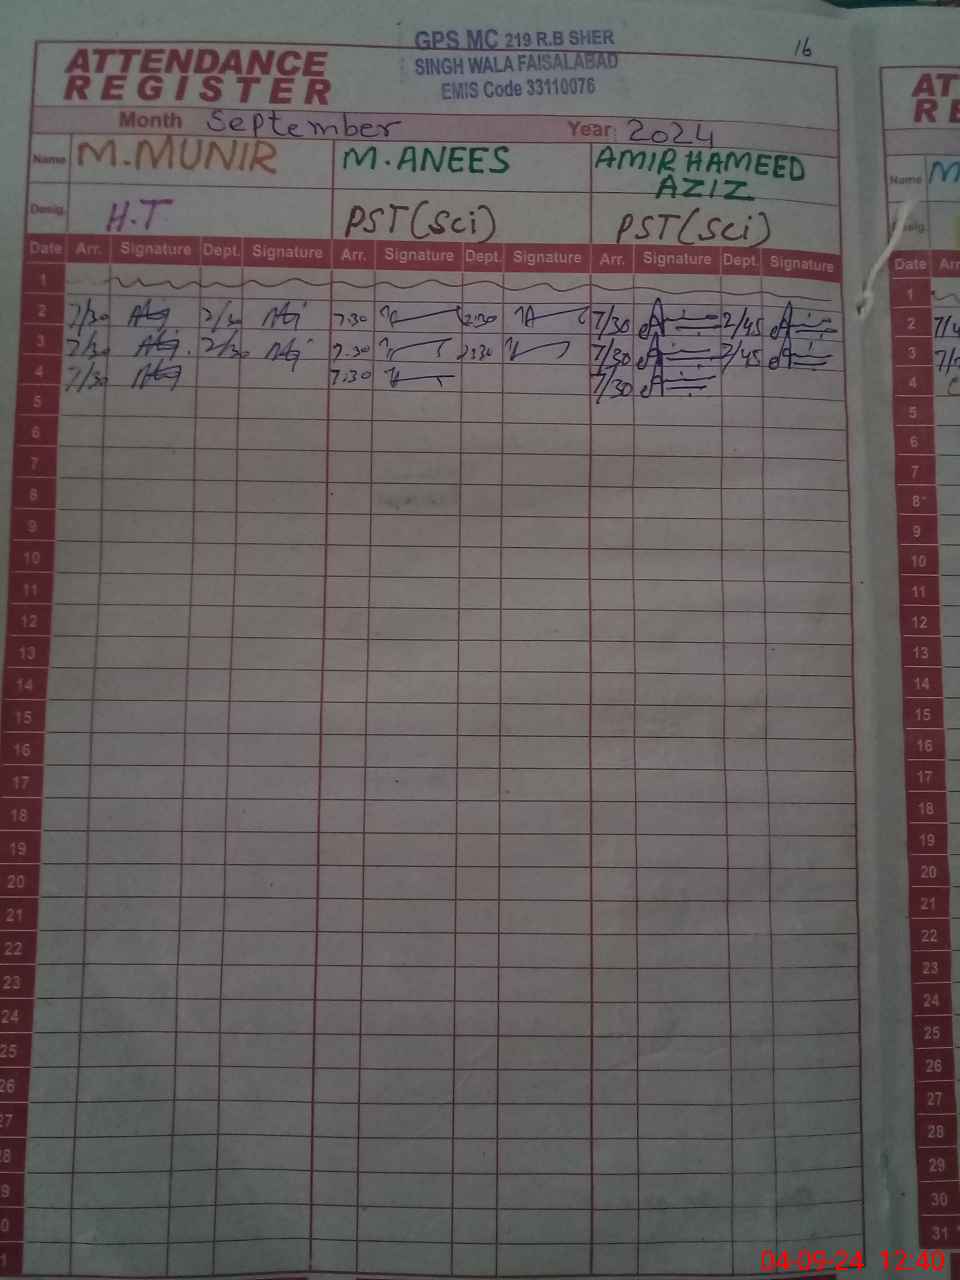 GPS MC 219 R.B SHER
SINGH WALA FAISALABAD
EMIS Code 33110076
16
ATTENDANCE
REGISTER
Month September Year: 2024
Name M.MUNIR M.ANEES AMIR HAMEED AZIZ
Desig. H.T PST(Sci) PST(Sci)
Date Arr. Signature Dept. Signature Arr. Signature Dept. Signature Arr. Signature Dept. Signature
1
2 7/30 2/30 7.30 2:30 7/30 2/45
3 7/30 2/30 7.30 2:30 7/30 2/45
4 7/30 7.30 7/30
5
6
7
8
9
10
11
12
13
14
15
16
17
18
19
20
21
22
23
24
25
26
27
8
9
0
1
AT
RE
Name M
Desig.
Date Arr
1
2 7/4
3 7/
4
5
6
7
8
9
10
11
12
13
14
15
16
17
18
19
20
21
22
23
24
25
26
27
28
29
30
31
04-09-24 12:40